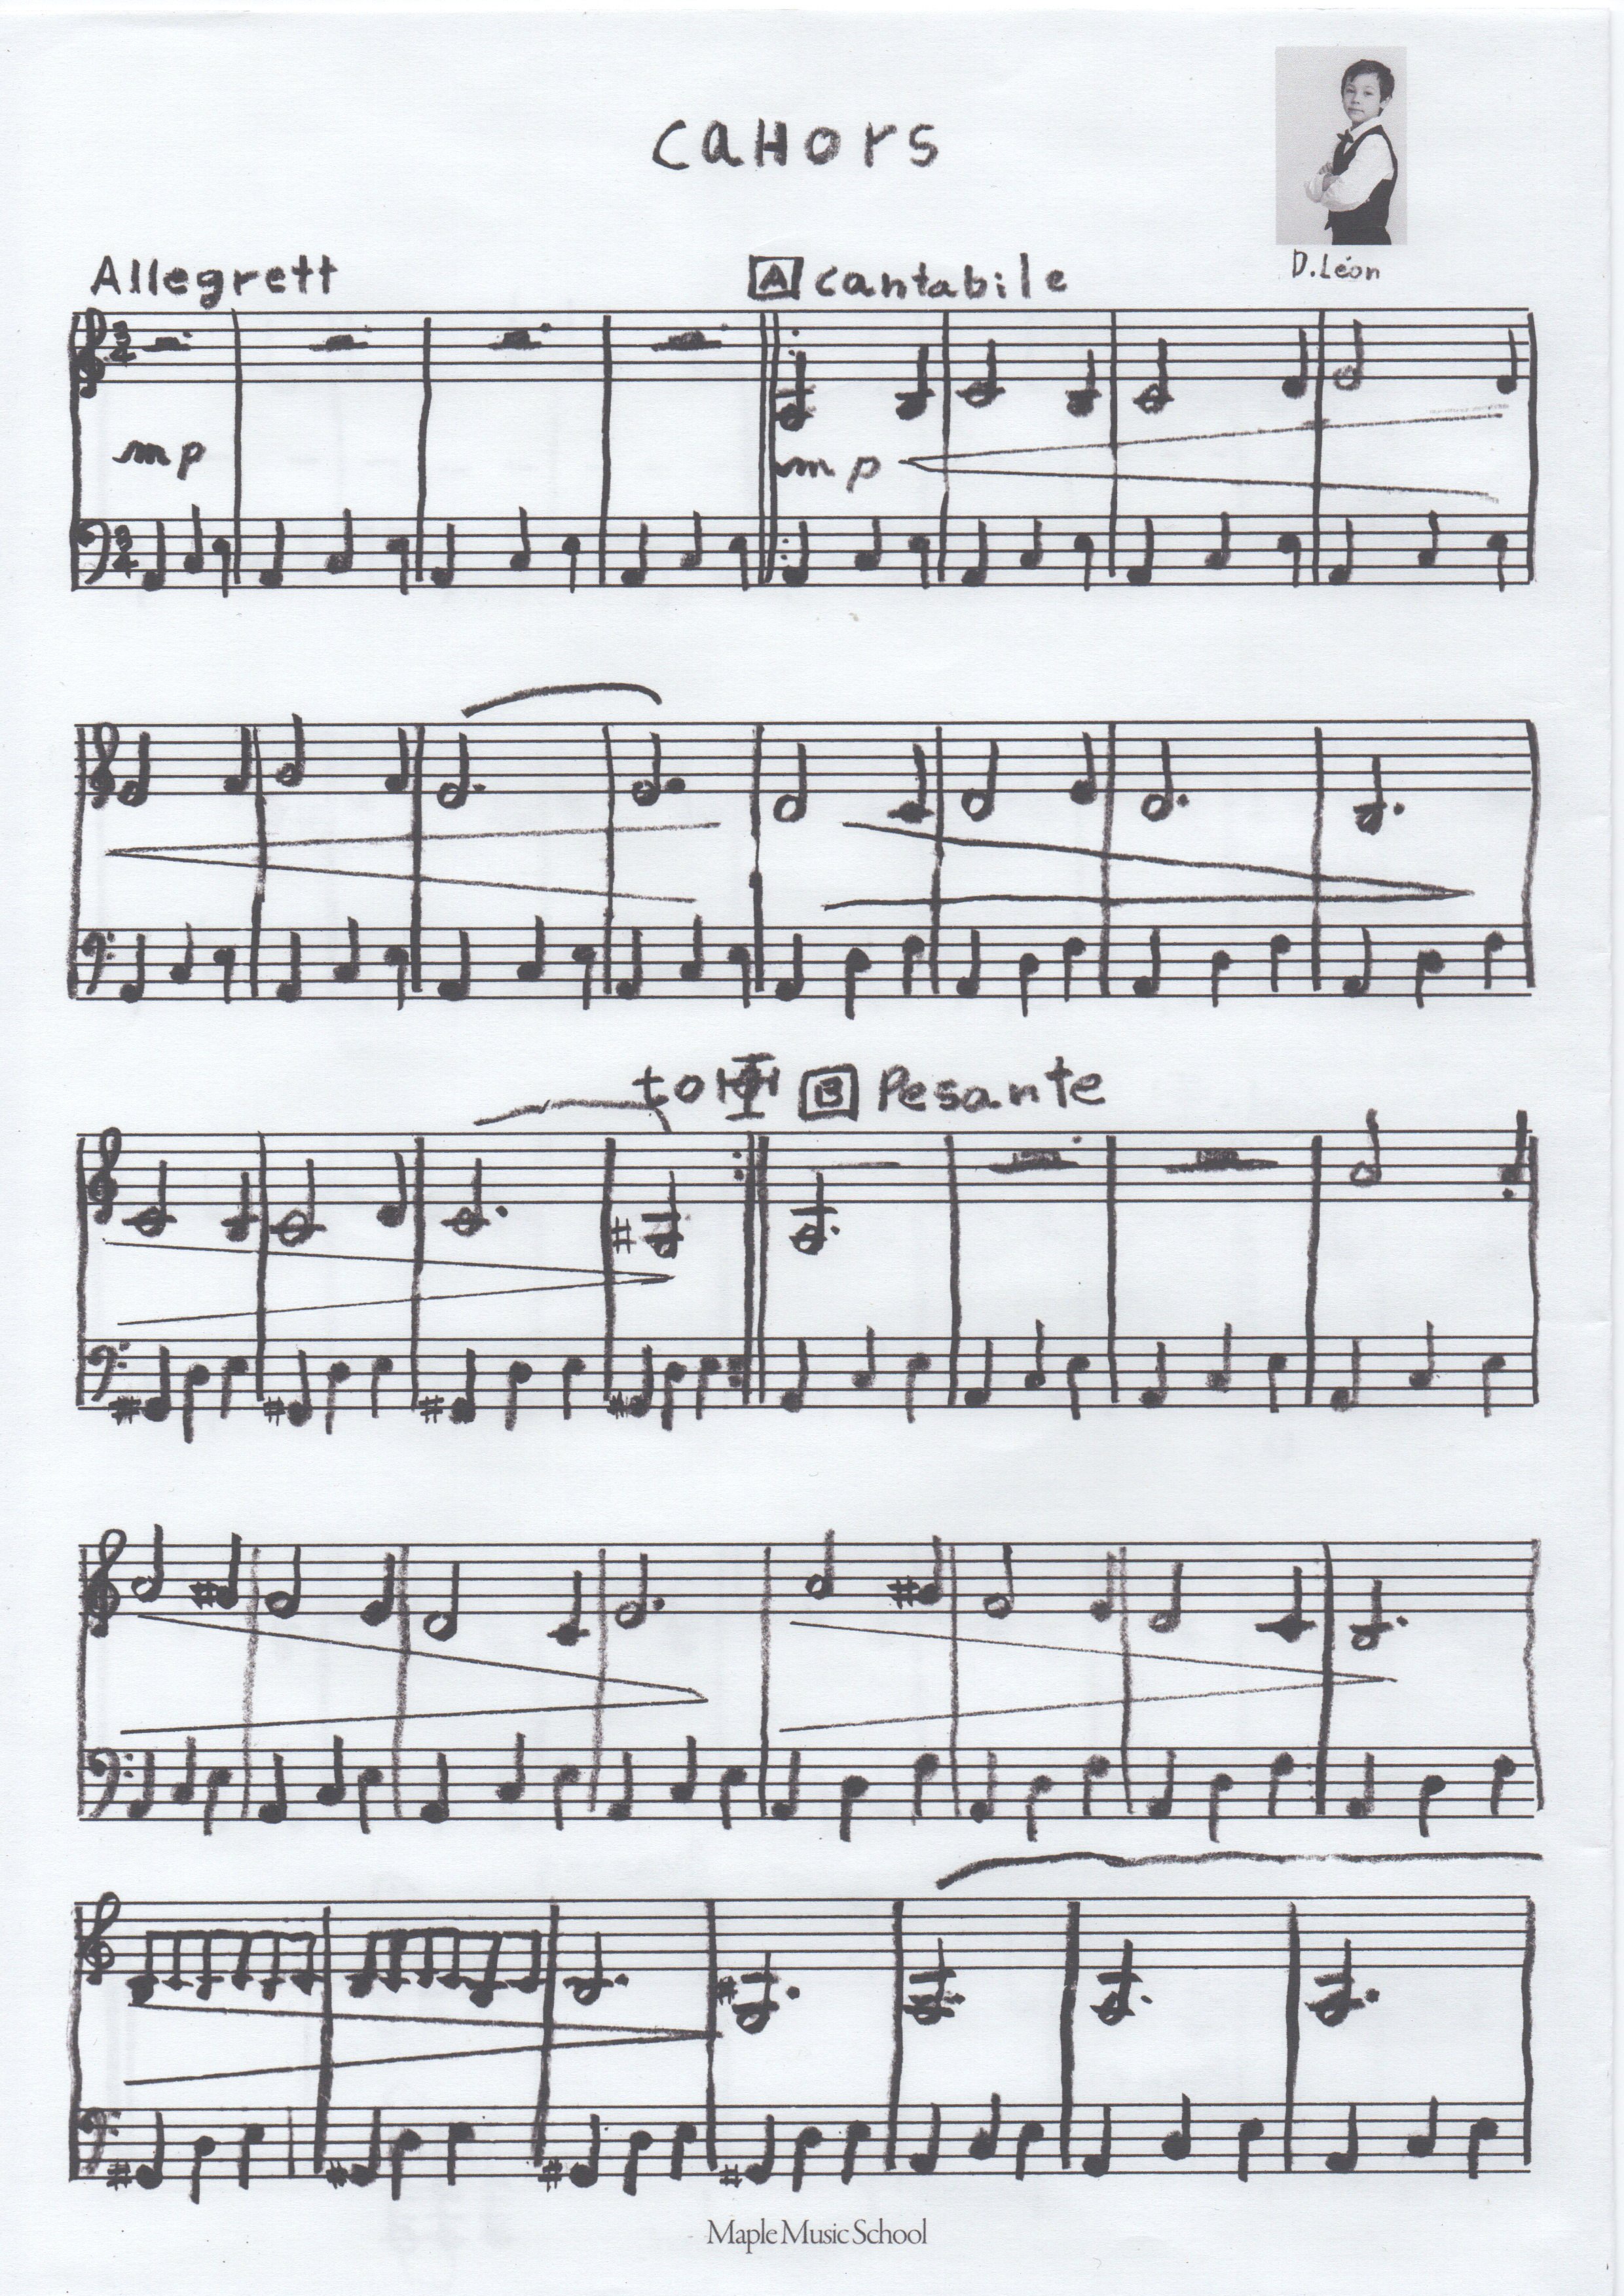 CAHORS
D.Léon
Allegrett
A cantabile
3
4
mp
mp
3
4
to
B Pesante
Maple Music School